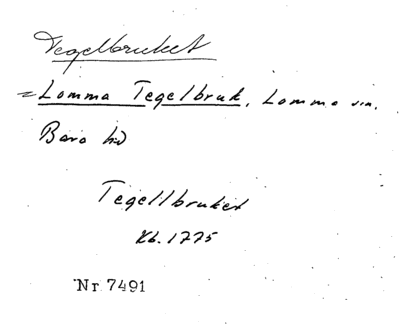 Tegelbruket
= Lomma Tegelbruk, Lomma sn.
Bara hd
Tegellbruket
Kb. 1775
Nr 7491